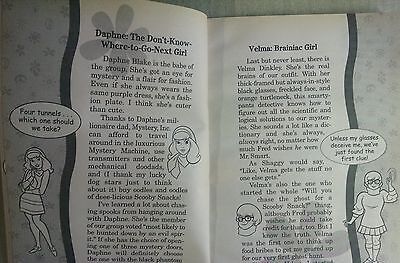 Daphne: The Don't-Know-
Where-to-Go-Next Girl
Daphne Blake is the babe
of the group. She's got an eye for
mystery and a flair for fashion.
Even if she always wears the
same purple dress, she's a fash-
ion plate. I think she's cuter
than cute.
Thanks to Daphne's mil-
lionaire dad, Mystery, Inc.
can afford to travel
around in the luxurious
Mystery Machine, use
transmitters and other
mechanical doodads,
and (I thank my lucky
dog stars just to think
about it!) buy oodles and oodles of
deee-licious Scooby Snacks!
I've learned a lot about chas-
ing spooks from hanging around
with Daphne. She's the member
of our group voted "most likely to
be hunted down by an evil spir-
it." If she has the choice of open-
ing one of three mystery doors,
Daphne will definitely choose
Four tunnels ...
which one should
we take?
Velma: Brainiac Girl
Last but never least, there is
Velma Dinkley. She's the real
brains of our outfit. With her
thick-framed but always-in-style
black glasses, freckled face, and
orange turtleneck, this smarty-
pants detective knows how to
figure out all the scientific and
logical solutions to our myster-
ies. She sounds a lot like a dic-
tionary and she's always,
always right, no matter how
much Fred wishes he were
Mr. Smart.
As Shaggy would say,
"Like, Velma gets the stuff no
one else gets."
Velma's also the one who
started the whole "Will you
chase the ghost for a
Scooby Snack?" thing,
although Fred probably
wishes he could take
credit for that, too. But I
know the truth. Velma
was the first one to think up
food bribes to get me geared up
Unless my glasses
deceive me, we've
just found the
first clue!